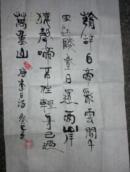 朝辞白帝彩雲間千
里江陵一日還兩岸
猿聲啼不住輕舟已過
萬重山